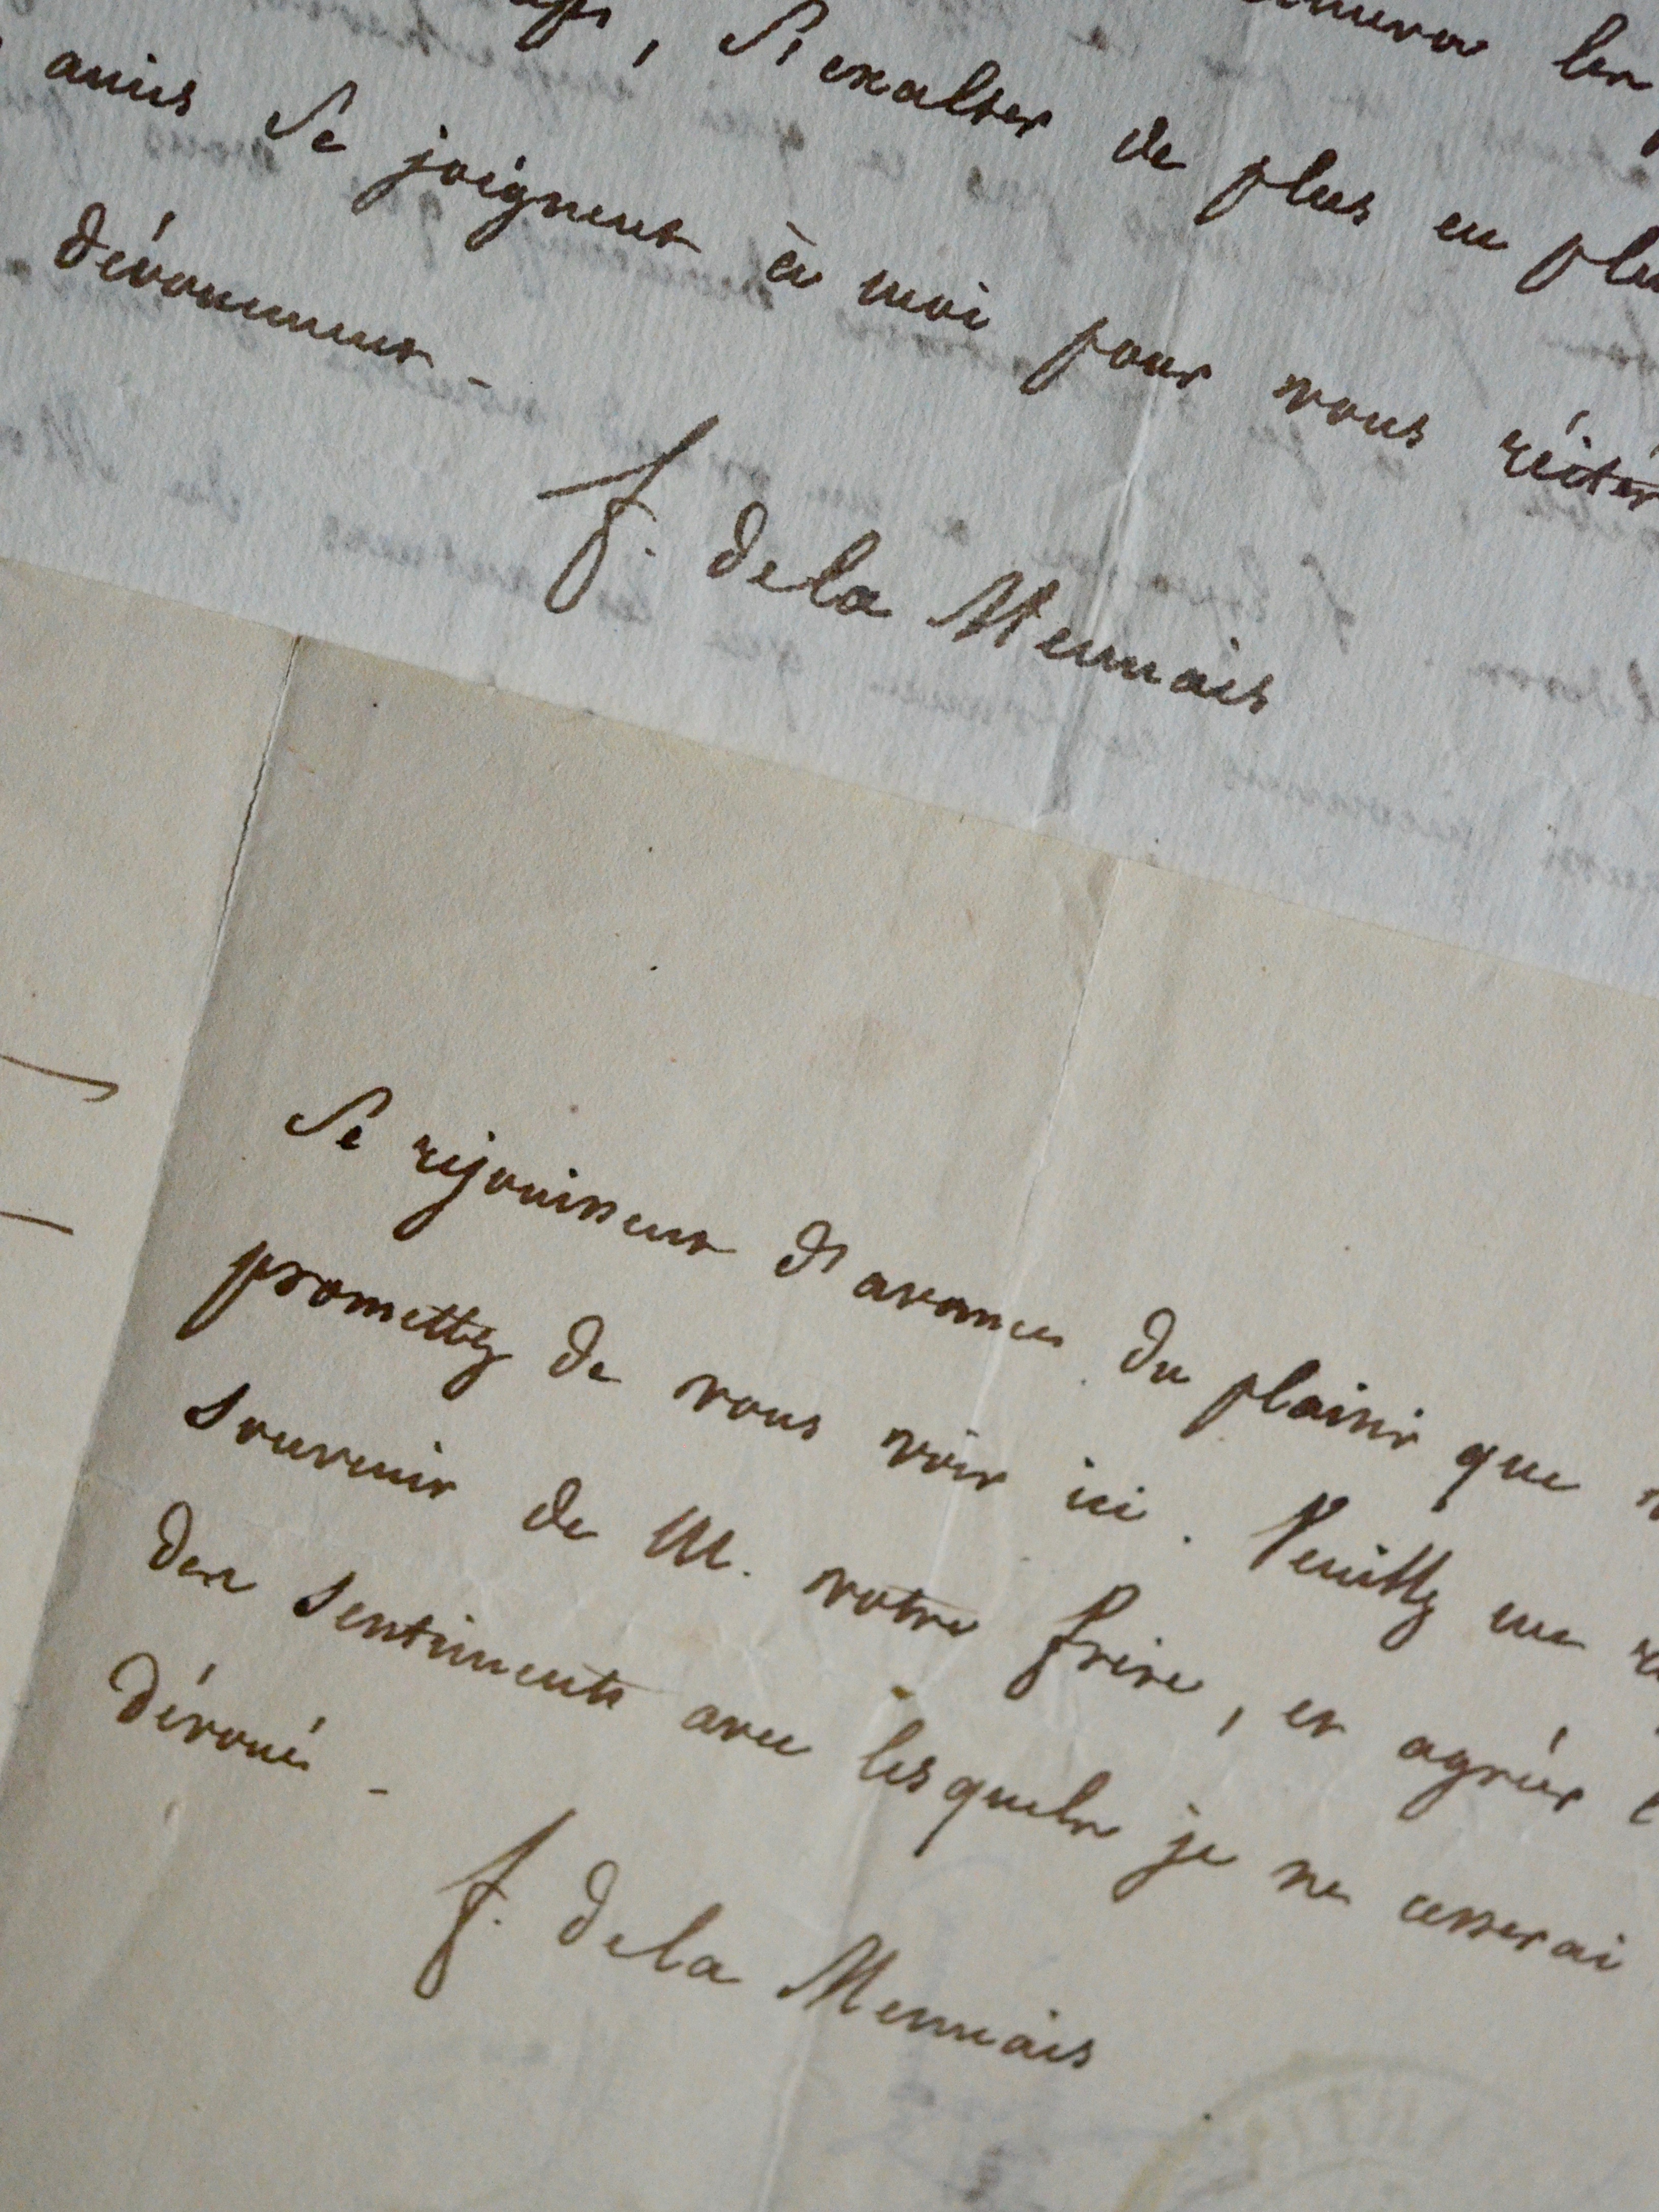 les
, s'exalter de plus en plus
amis se joignent à moi pour vous réitérer
dévouement -
f. de la Mennais
se réjouissent d'avance du plaisir que
promettez de vous voir ici. Veuillez me
souvenir de M. votre frère, et agréer
des sentiments avec lesquels je ne cesserai
dévoué -
f. de la Mennais